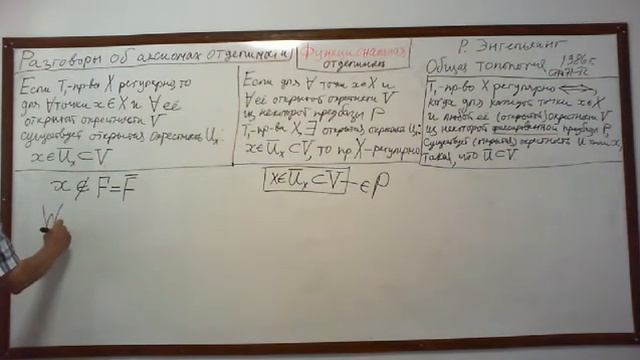 Разговоры об аксиомах отделимости
Функциональная
отделимость
Р. Энгелькинг
Общая топология
1986г.
Если T₁-пр-во X регулярно, то
для ∀ точки x∈X и ∀ её
открытой окрестности V
существует открытая окрестность Uₓ:
x∈Ūₓ⊂V
Если для ∀ точки x∈X и
∀ её открытой окрестности V
из некоторой предбазы P
T₁-пр-ва X ∃ открытая окрестн. Uₓ:
x∈Ūₓ⊂V, то пр X-регулярно
T₁-пр-во X регулярно ⟺,
когда для каждой точки x∈X
и любой её (открытой) окрестности V
из некоторой предбазы P,
существует (открытая) окрестность U точки x,
такая, что Ū⊂V.
x∉F=F̄
x∈Ūₓ⊂V-∈P
W